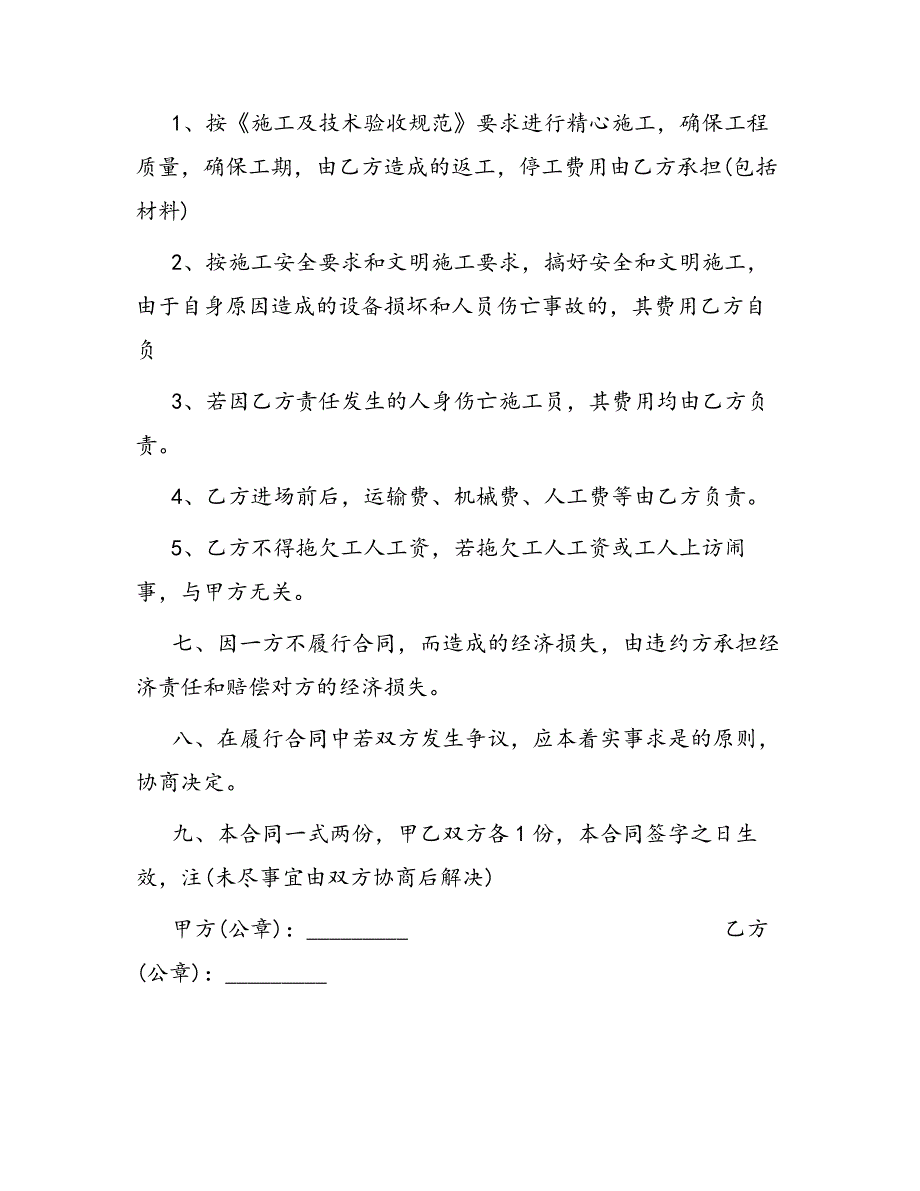 1、按《施工及技术验收规范》要求进行精心施工，确保工程
质量，确保工期，由乙方造成的返工，停工费用由乙方承担(包括
材料)
2、按施工安全要求和文明施工要求，搞好安全和文明施工，
由于自身原因造成的设备损坏和人员伤亡事故的，其费用乙方自
负
3、若因乙方责任发生的人身伤亡施工员，其费用均由乙方负
责。
4、乙方进场前后，运输费、机械费、人工费等由乙方负责。
5、乙方不得拖欠工人工资，若拖欠工人工资或工人上访闹
事，与甲方无关。
七、因一方不履行合同，而造成的经济损失，由违约方承担经
济责任和赔偿对方的经济损失。
八、在履行合同中若双方发生争议，应本着实事求是的原则，
协商决定。
九、本合同一式两份，甲乙双方各1份，本合同签字之日生
效，注(未尽事宜由双方协商后解决)
甲方(公章)：_________ 乙方
(公章)：_________